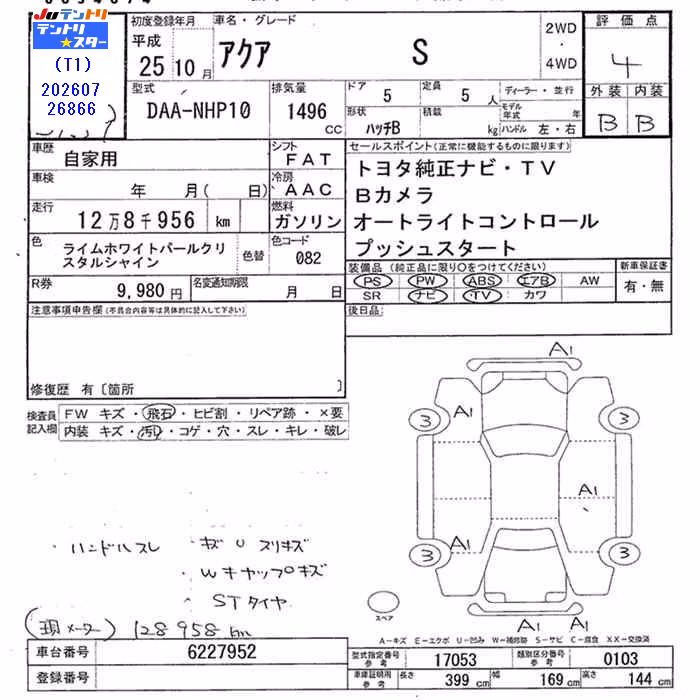 Juテントリ
テントリ★スター
(T1)
202607
26866
初度登録年月 平成 25 10月
車名・グレード アクア S
2WD・4WD
評価点 4
外装 B 内装 B
型式 DAA-NHP10
排気量 1496 cc
ドア 5 定員 5人
形状 ハッチB 積載 kg
ディーラー・並行
モデル年式 年
ハンドル 左・右
車歴 自家用
シフト FAT
車検 年 月( 日)
冷房 AAC
走行 12万8千956 km
燃料 ガソリン
色 ライムホワイトパールクリスタルシャイン
色替
色コード 082
R券 9,980円
名変通知期限 月 日
セールスポイント(正常に機能するものに限ります)
トヨタ純正ナビ・TV
Bカメラ
オートライトコントロール
プッシュスタート
装備品(純正品に限り○をつけてください)
PS PW ABS エアB AW
SR ナビ ・TV カワ
新車保証書 有・無
後日品
注意事項申告欄(不具合内容等は具体的に記入して下さい)
修復歴 有〔箇所 〕
検査員記入欄
FW キズ・飛石・ヒビ割・リペア跡・×要
内装 キズ・汚れ・コゲ・穴・スレ・キレ・破レ
A1
A1
3
3
A1
A1
A1
3
3
A1 A1
スペア
・ハンドルスレ
・キズU スリキズ
・Wキャップ○キズ
・STタイヤ
(現メーター) 128958km
A-キズ E-エクボ U-凹み W-補修跡 S-サビ C-腐食 XX-交換済
車台番号 6227952
登録番号
型式指定番号 参考 17053
類別区分番号 参考 0103
車庫証明用 参考 長さ 399 cm 幅 169 cm 高さ 144 cm